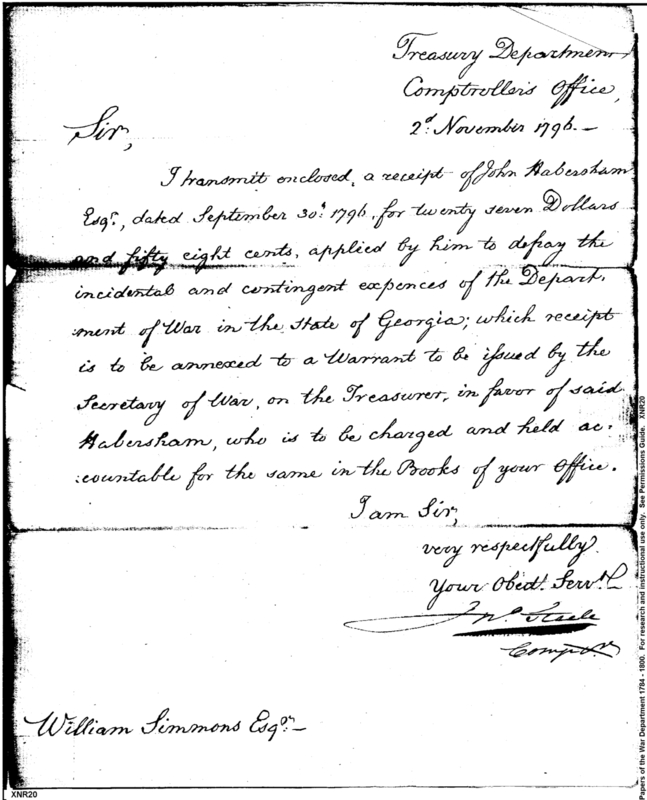 Treasury Department
Comptroller's Office,
2d. November 1796.—
Sir,
I transmit enclosed, a receipt of John Habersham
Esqr., dated September 30th. 1796. for twenty seven Dollars
and fifty eight cents, applied by him to defray the
incidental and contingent expences of the Depart-
:ment of War in the State of Georgia; which receipt
is to be annexed to a Warrant to be issued by the
Secretary of War, on the Treasurer, in favor of said
Habersham, who is to be charged and held ac-
:countable for the same in the Books of your Office.
I am Sir,
very respectfully.
Your Obedt. Servt.
Jno. Steele
Comptr.
William Simmons Esqr.—
XNR20
Papers of the War Department 1784 - 1800. For research and instructional use only. See Permissions Guide. XNR20